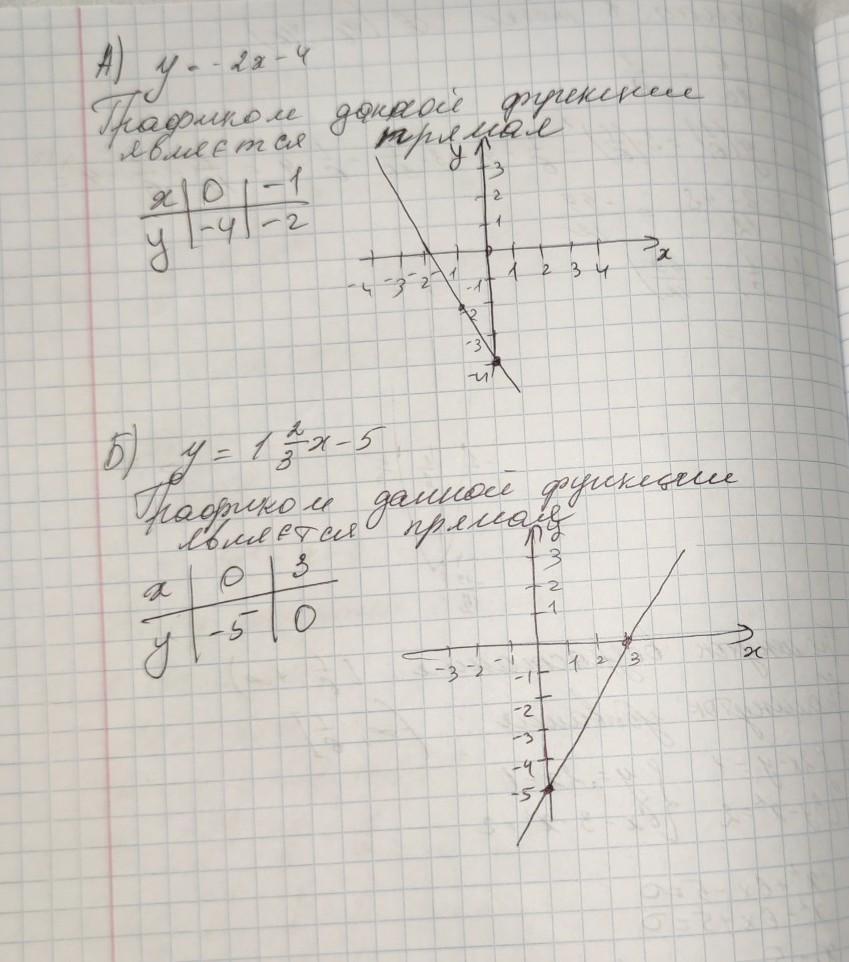 А) y = -2x-4
Графиком данной функции
является прямая
x | 0 | -1
y | -4 | -2
y
3
2
1
-4 -3 -2 -1 1 2 3 4 x
-1
-2
-3
-4
Б) y = 1 2/3 x - 5
Графиком данной функции
является прямая
x | 0 | 3
y | -5 | 0
y
3
2
1
-3 -2 -1 1 2 3 x
-1
-2
-3
-4
-5